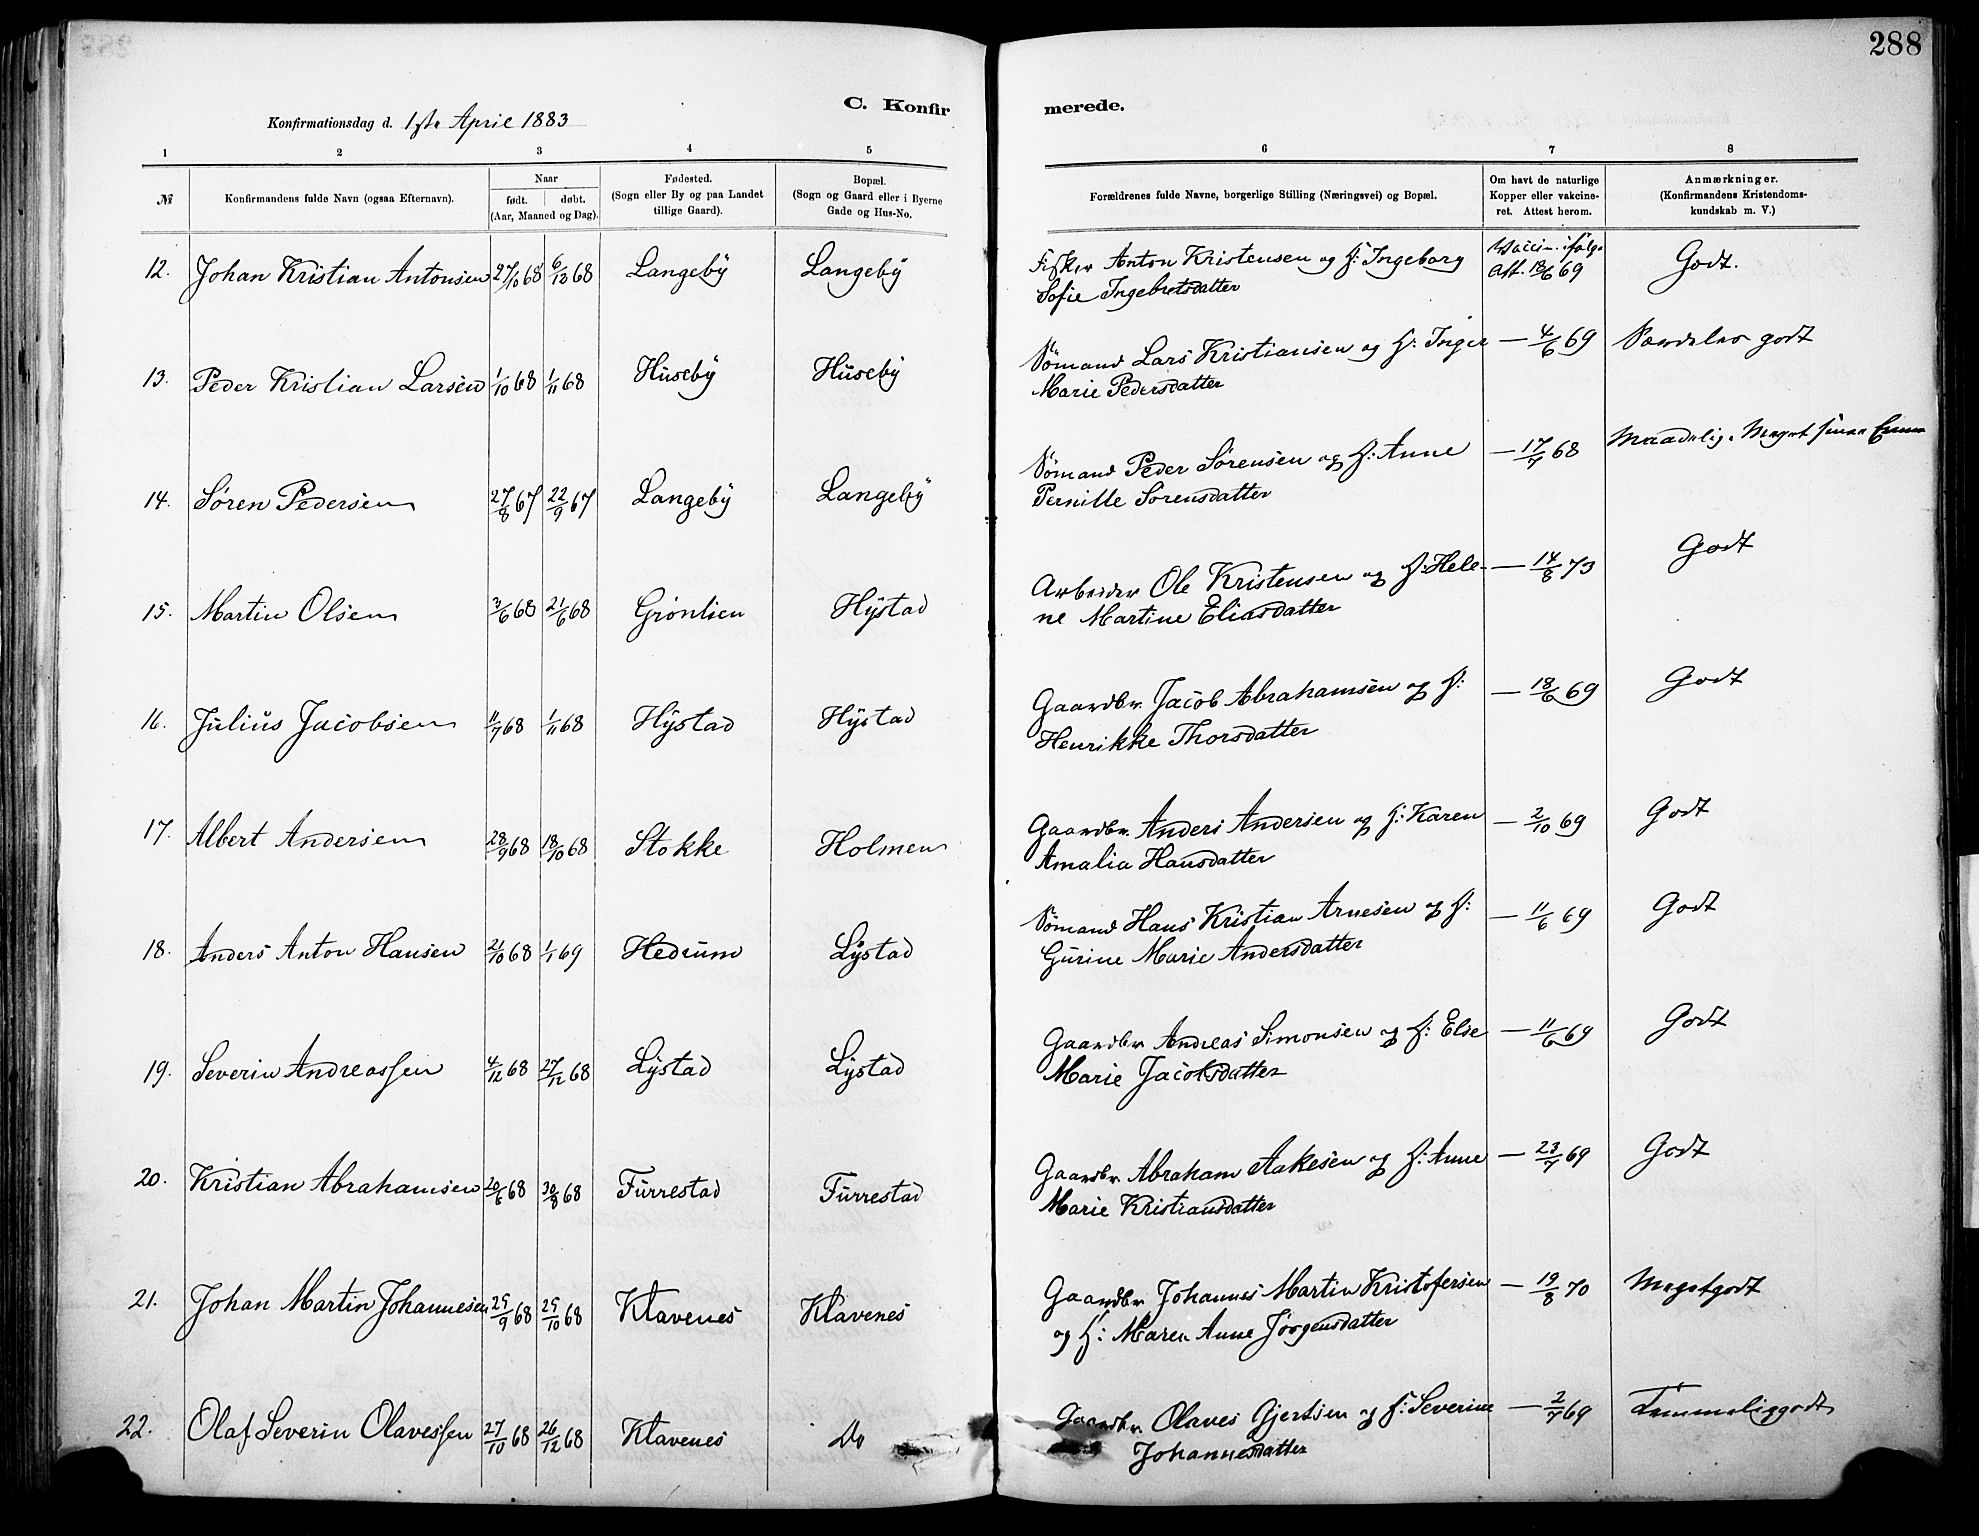 288
C. Konfir merede.
Konfirmationsdag d. 1ste April 1883
1 2 3 4 5 6 7 8
№
Konfirmandens fulde Navn (ogsaa Efternavn).
Naar
født. døbt.
(Aar, Maaned og Dag).
Fødested.
(Sogn eller By og paa Landet
tillige Gaard).
Bopæl.
(Sogn og Gaard eller i Byerne
Gade og Hus-No.
Forældrenes fulde Navne, borgerlige Stilling (Næringsvei) og Bopæl.
Om havt de naturlige
Kopper eller vakcine-
ret. Attest herom.
Anmærkninger.
(Konfirmandens Kristendoms-
kundskab m. V.)
12. Johan Kristian Antonsen 27/10 68 6/12 68 Langeby Langeby Fisker Anton Kristensen og H: Ingeborg Vaccin. ifølge Godt.
Sofie Ingebretsdatter Att. 18/6 69
13. Peder Kristian Larsen 1/10 68 1/11 68 Huseby Huseby Sømand Lars Kristiansen og H: Inger — 4/6 69 Særdeles godt
Marie Pedersdatter
14. Søren Pedersen 27/8 67 22/9 67 Langeby Langeby Sømand Peder Sørensen og H: Anne — 17/7 68 Maadelig. Meget
Pernille Sorensdatter
15. Martin Olsen 3/6 68 21/6 68 Grønlien Hystad Arbeider Ole Kristensen og H: Hele- — 14/8 73 Godt
ne Martine Eliasdatter
16. Julius Jacobsen 11/7 68 1/11 68 Hystad Hystad Gaardbr. Jacob Abrahamsen og H: — 18/6 69 Godt
Henrikke Thorsdatter
17. Albert Andersen 28/9 68 18/10 68 Stokke Holmen Gaardbr. Anders Andersen og H: Karen — 2/10 69 Godt
Amalia Hansdatter
18. Anders Anton Hansen 21/10 68 1/1 69 Hedrum Lystad Sømand Hans Kristian Arnesen og H: — 11/6 69 Godt
Gurine Marie Andersdatter
19. Severin Andreassen 4/12 68 27/12 68 Lystad Lystad Gaardbr Andreas Simonsen og H: Else — 11/6 69 Godt
Marie Jacobsdatter
20. Kristian Abrahamsen 20/6 68 30/8 68 Furrestad Furrestad Gaardbr. Abraham Aakesen og H: Anne — 23/7 69 Godt
Marie Kristiansdatter
21. Johan Martin Johannesen 25/9 68 25/10 68 Klavenes Klavenes Gaardbr Johannes Martin Kristofersen — 19/8 70 Megetgodt
og H: Maren Anne Jørgensdatter
22. Olaf Severin Olavessen 27/10 68 26/12 68 Klavenes Do Gaardbr. Olaves Gjertsen og H: Severine — 2/7 69 Temmeliggodt
Johannesdatter